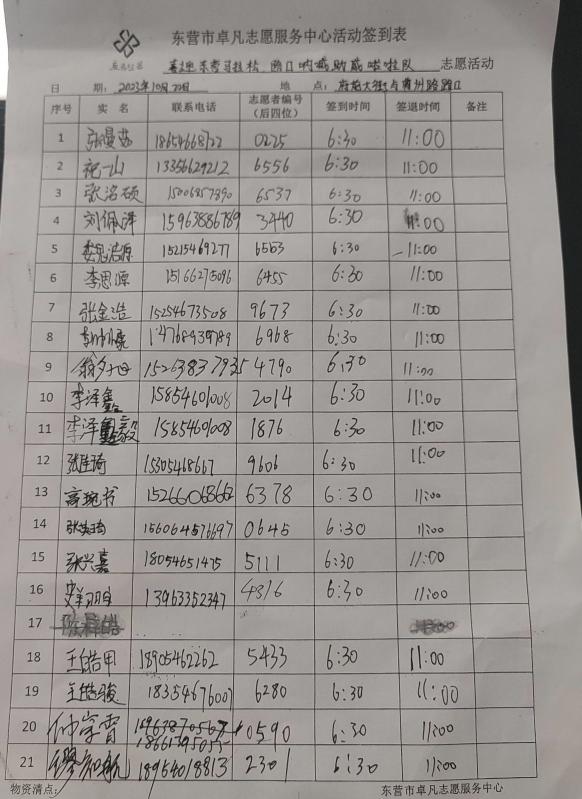 东营市卓凡志愿服务中心活动签到表
喜迎东营马拉松 路口呐喊助威啦啦队 志愿活动
日 期: 2023年10月22日 地 点: 府前大街与胄州路路口
序号 实 名 联系电话 志愿者编号(后四位) 签到时间 签退时间 备注
1 张曼茹 0225 6:30 11:00
2 祝一山 13356629212 6556 6:30 11:00
3 张洺硕 6537 6:30 11:00
4 刘佩泽 15963886789 3440 6:30 11:00
5 15215469277 6553 6:30 11:00
6 李思源 15166275096 6455 6:30 11:00
7 张金浩 15254673508 9673 6:30 11:00
8 6968 6:30 11:00
9 4790 6:30 11:00
10 李泽鑫 15854601008 2014 6:30 11:00
11 李泽毅 15854601008 1876 6:30 11:00
12 张佳琦 15305468667 9606 6:30 11:00
13 高琬书 15266068662 6378 6:30 11:00
14 0645 6:30 11:00
15 张兴嘉 18054651475 5111 6:30 11:00
16 13963352347 4316 6:30 11:00
17
18 王皓甲 18905462262 5433 6:30 11:00
19 王皓骏 18354676007 6280 6:30 11:00
20 仲崇霄 0590 6:30 11:00
21 缪知航 18964018813 2301 6:30 11:00
物资清点: 东营市卓凡志愿服务中心